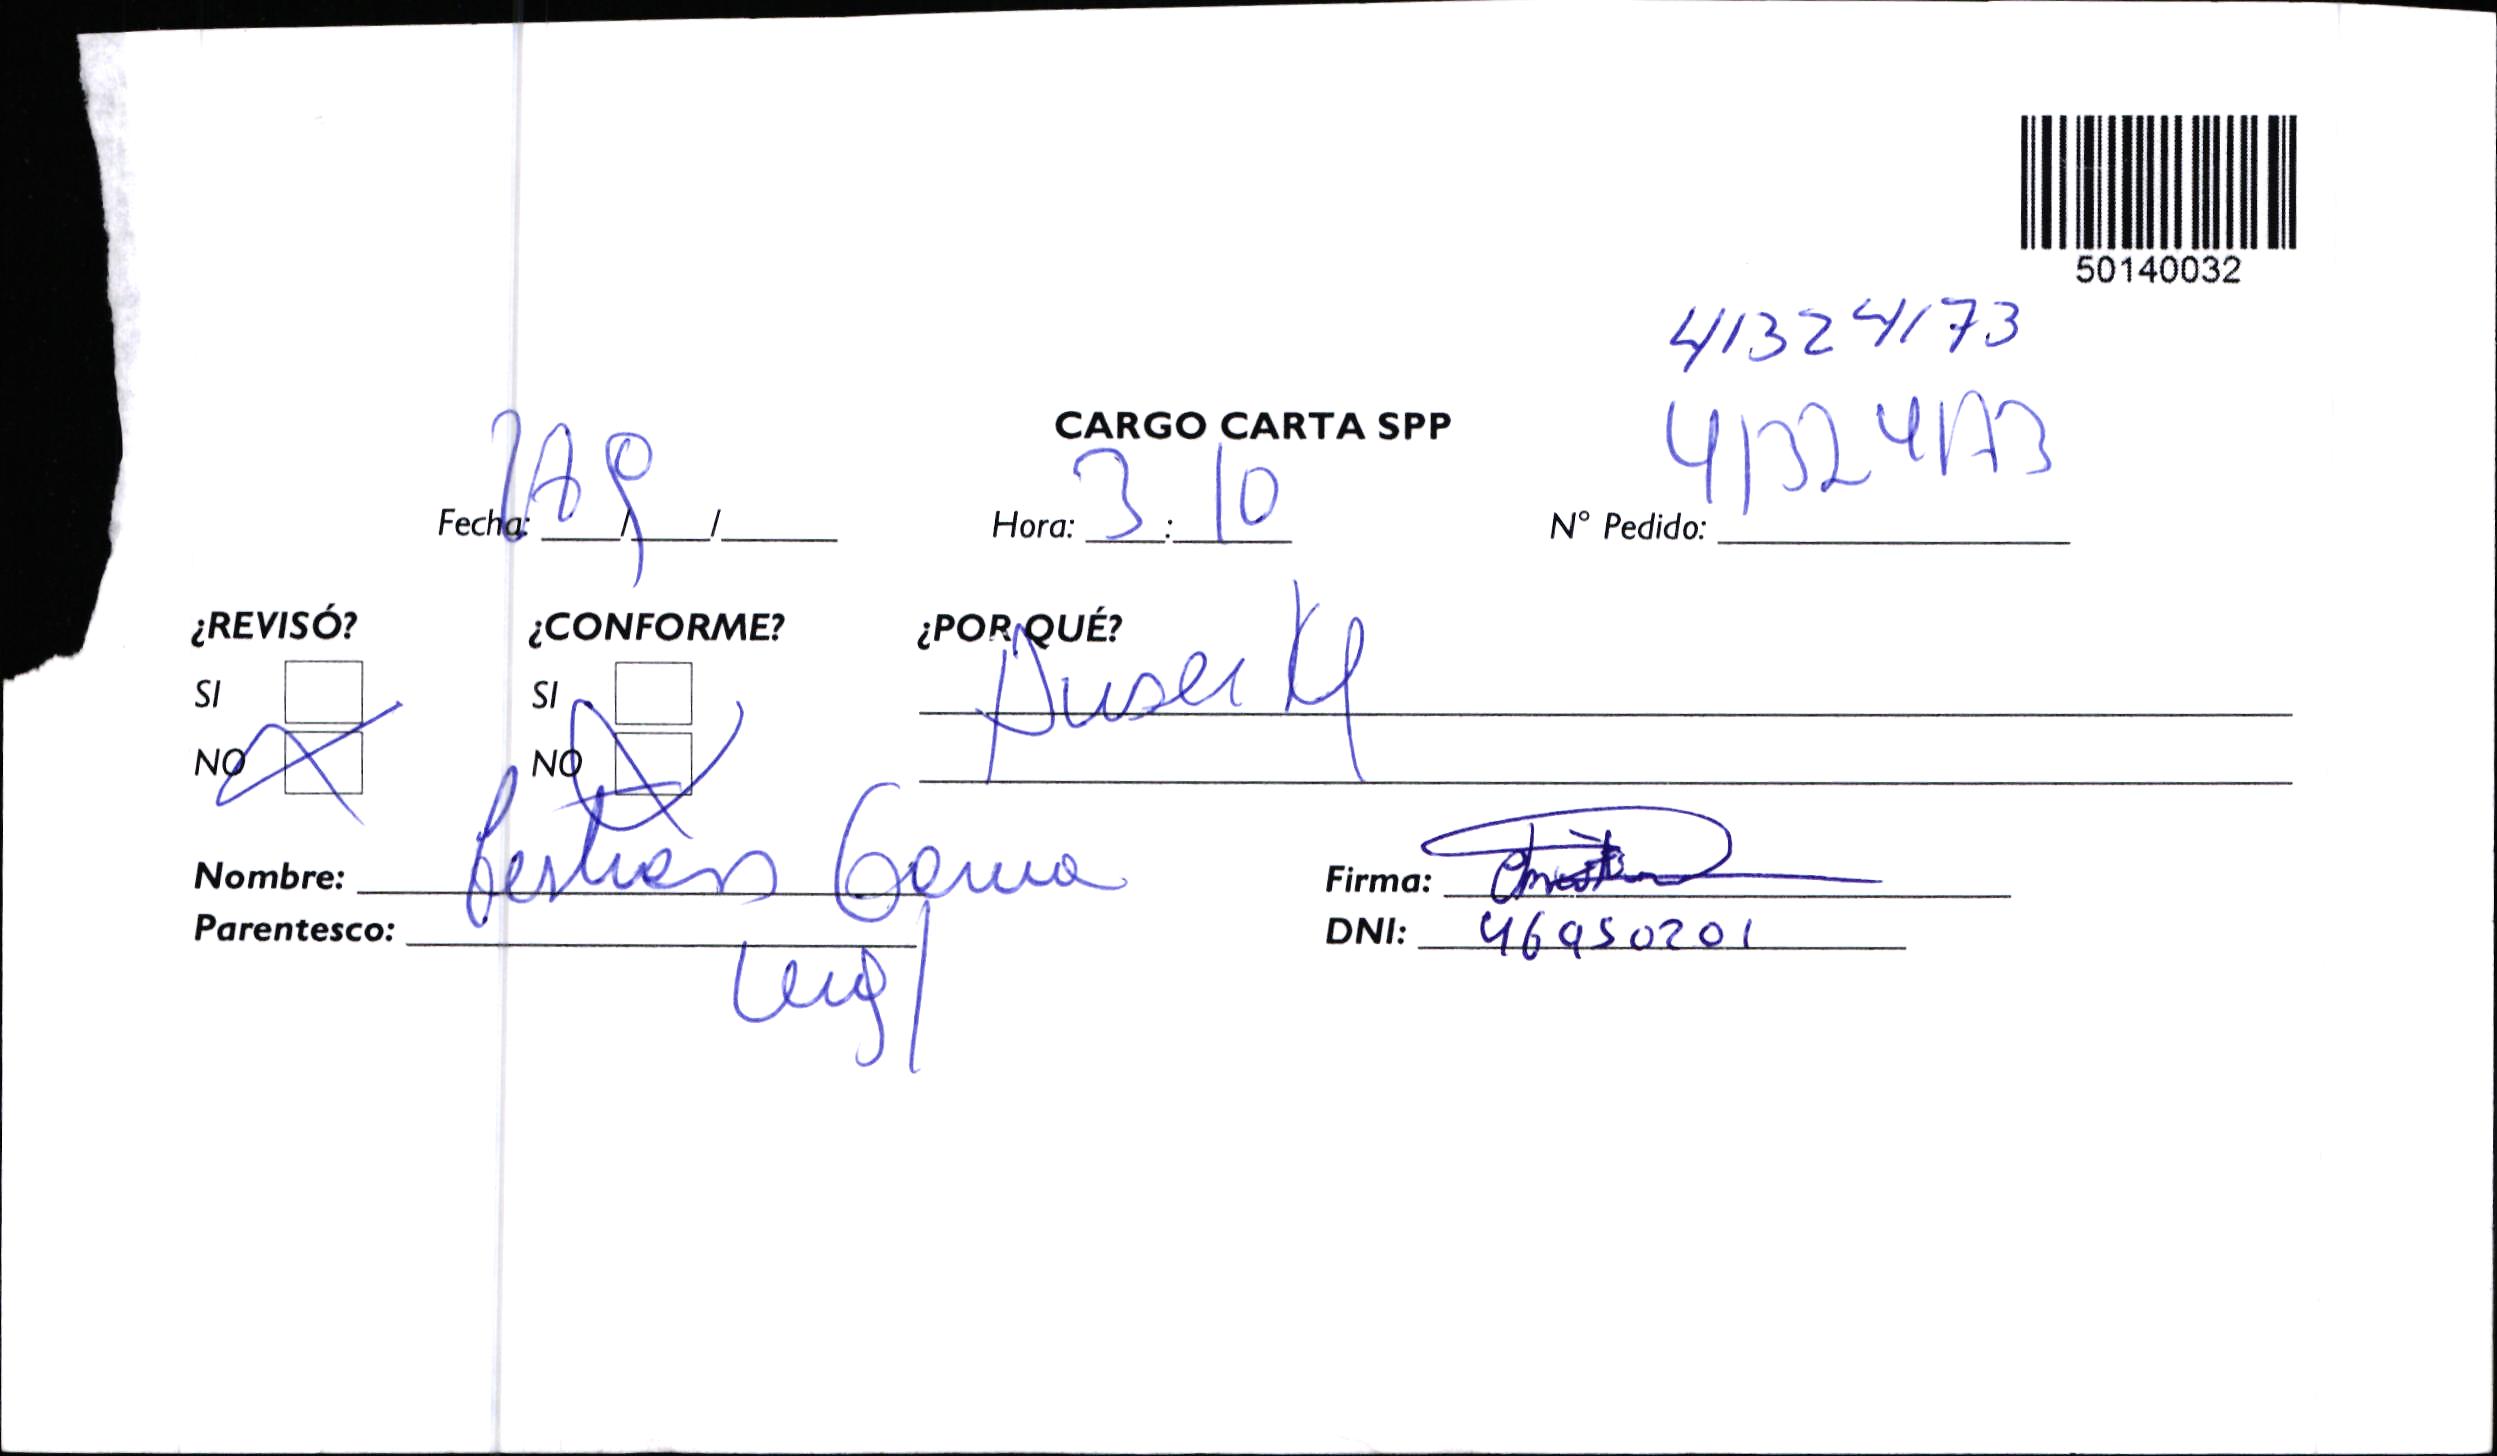 50140032
41324173
CARGO CARTA SPP
41324173
Fecha: / / Hora: 3:10 N° Pedido:
¿REVISÓ? ¿CONFORME? ¿POR QUÉ?
SI SI
NO NO
Nombre: Firma:
Parentesco: DNI: 46950201